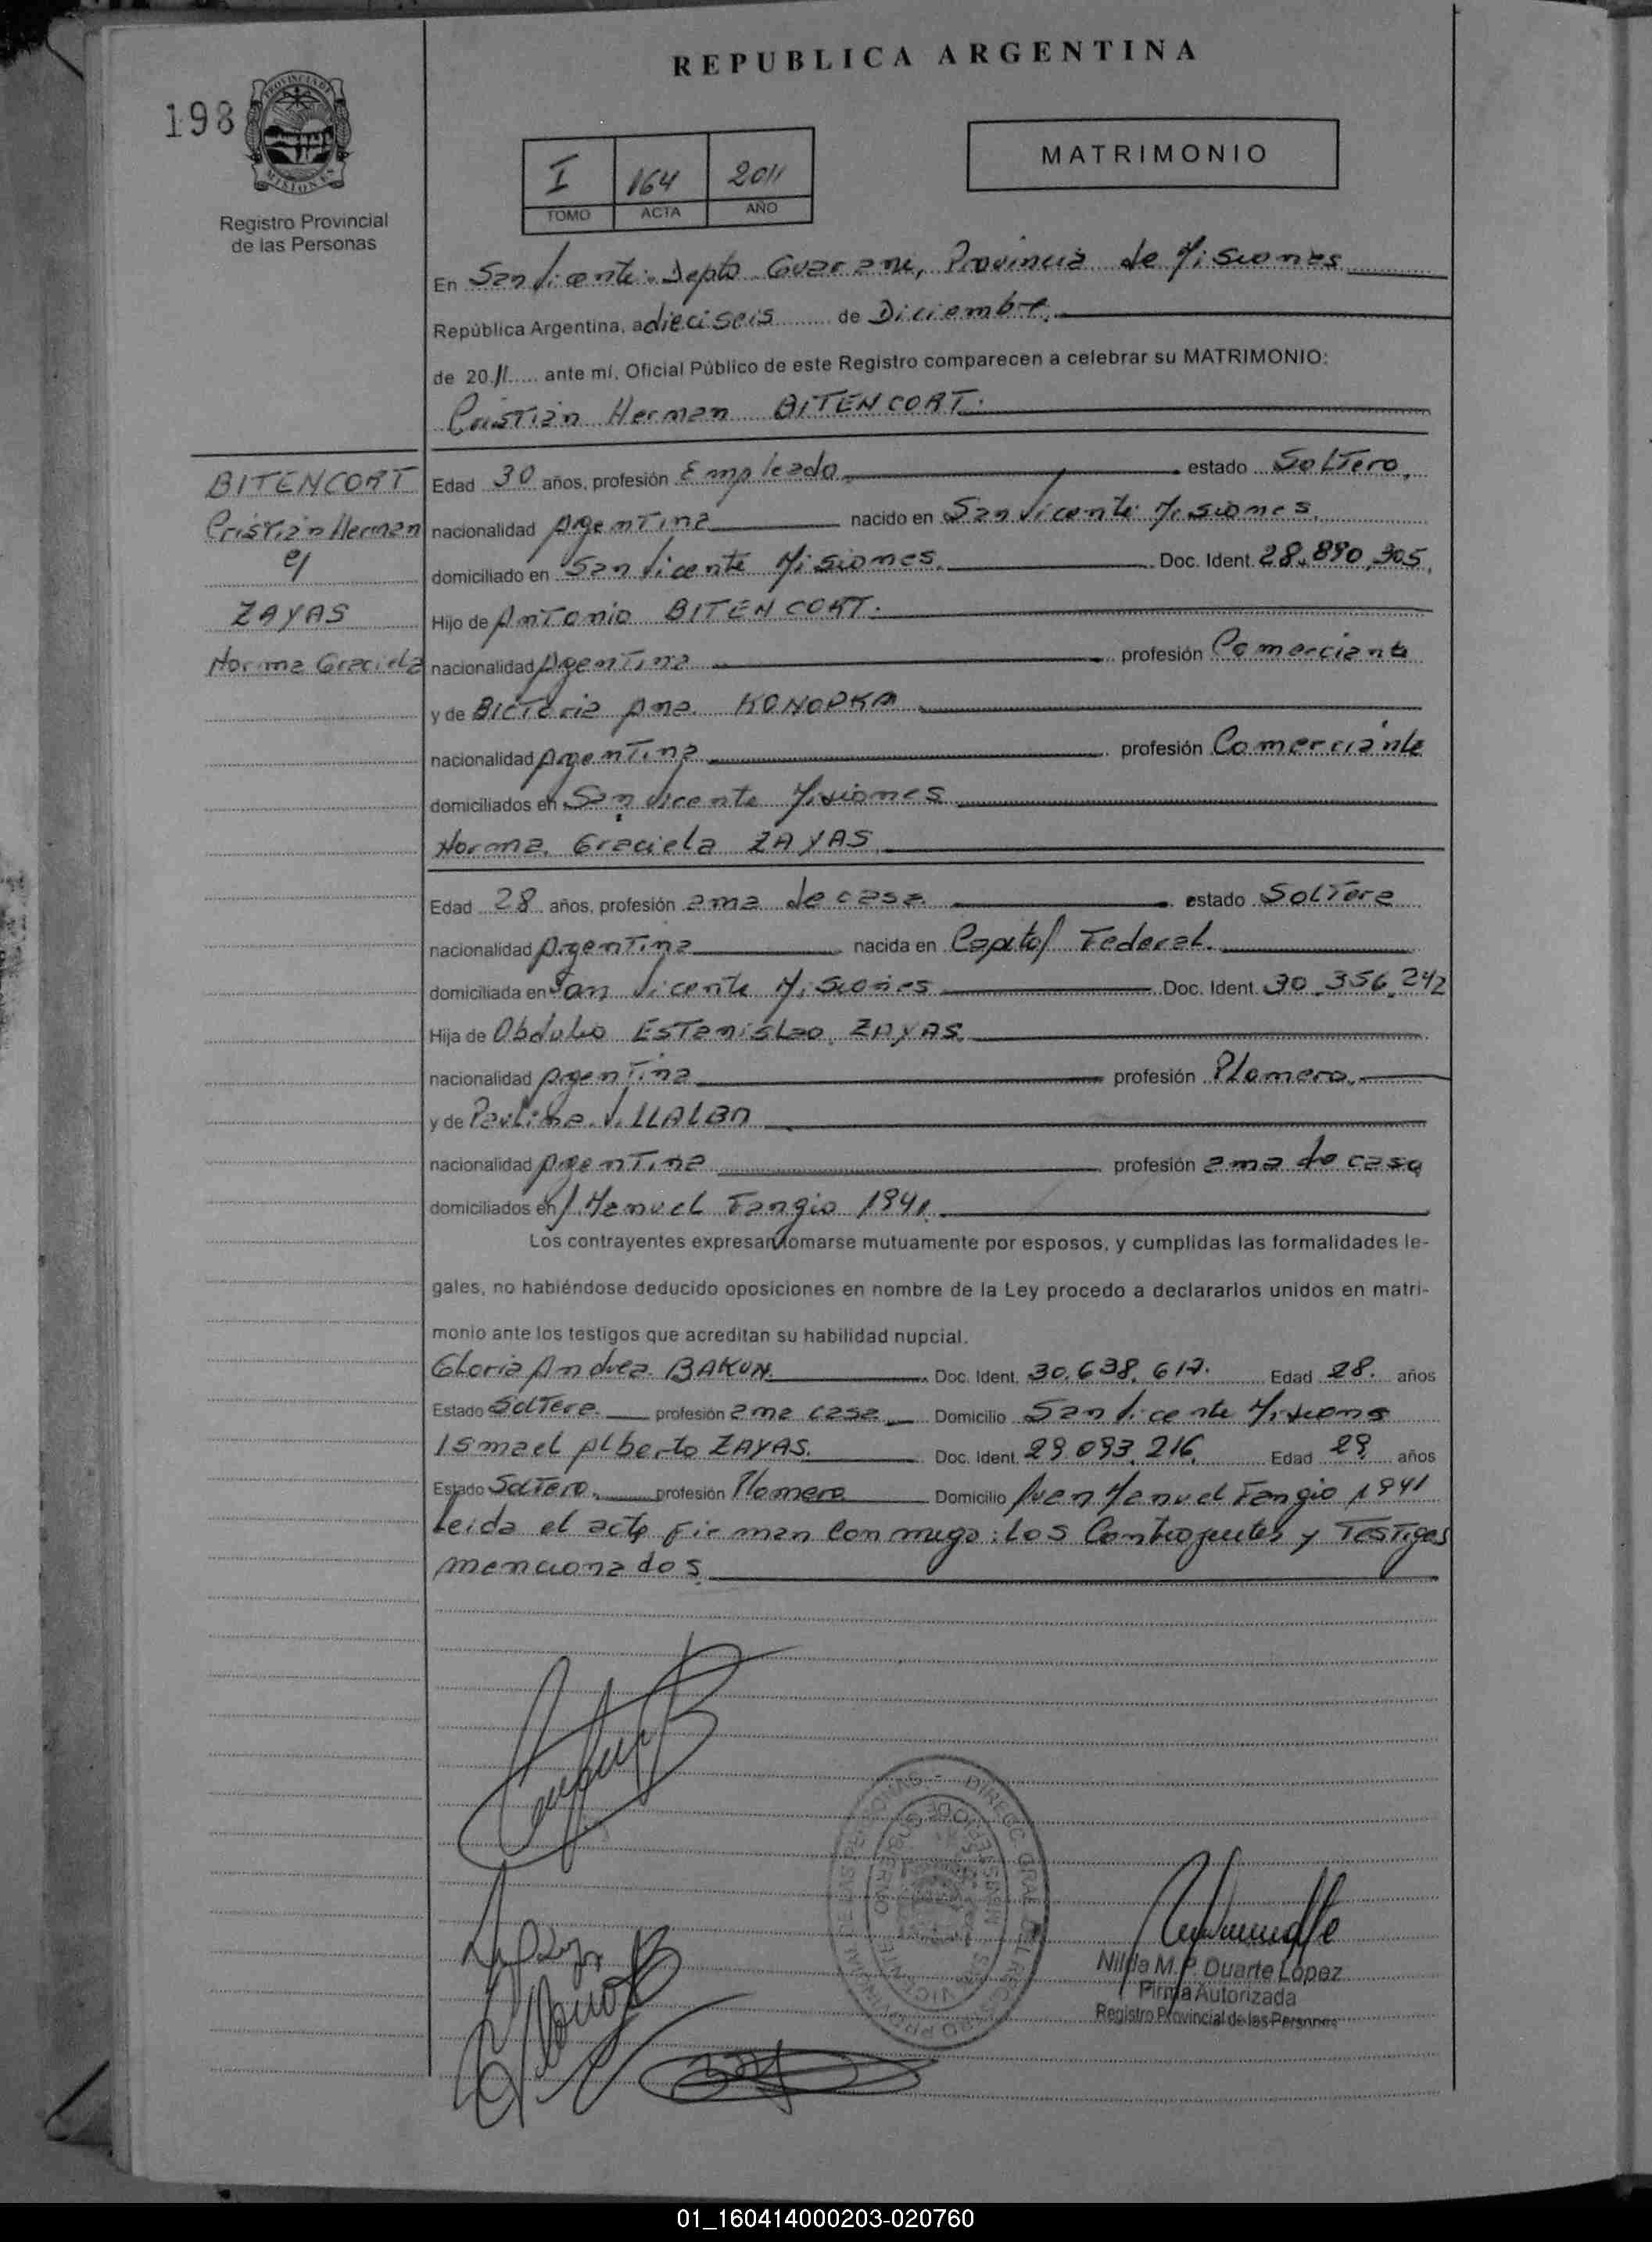 REPUBLICA ARGENTINA
198
PROVINCIA DE
MISIONES
Registro Provincial
de las Personas
I 164 2011
TOMO ACTA AÑO
MATRIMONIO
En San Vicente Depto Guarani, Provincia de Misiones
República Argentina, a dieciseis de Diciembre
de 2011 ante mí, Oficial Público de este Registro comparecen a celebrar su MATRIMONIO:
Cristian Herman BITENCORT.
BITENCORT
Cristian Herman
c/
ZAYAS
Norma Graciela
Edad 30 años, profesión Empleado estado Soltero.
nacionalidad Argentina nacido en San Vicente Misiones.
domiciliado en San Vicente Misiones. Doc. Ident. 28.890.305.
Hijo de Antonio BITENCORT.
nacionalidad Argentina profesión Comerciante
y de Bictoria Ana. KONOPKA
nacionalidad Argentina profesión Comerciante
domiciliados en San Vicente Misiones
Norma Graciela ZAYAS
Edad 28 años, profesión ama de casa estado Soltera
nacionalidad Argentina nacida en Capital Federal.
domiciliada en San Vicente Misiones Doc. Ident. 30.356.242
Hija de Obdulio Estanislao ZAYAS.
nacionalidad Argentina profesión Plomero.
y de Paulina VILLALBA
nacionalidad Argentina profesión ama de casa
domiciliados en J. Manuel Fangio 1941.
Los contrayentes expresan tomarse mutuamente por esposos, y cumplidas las formalidades le-
gales, no habiéndose deducido oposiciones en nombre de la Ley procedo a declararlos unidos en matri-
monio ante los testigos que acreditan su habilidad nupcial.
Gloria Andrea BAKUN. Doc. Ident. 30.638.617. Edad 28. años
Estado Soltera. profesión ama casa Domicilio San Vicente Misiones
Ismael Alberto ZAYAS. Doc. Ident. 29.093.216 Edad 29 años
Estado Soltero. profesión Plomero Domicilio Juan Manuel Fangio 1941
Leida el acta firman conmigo: Los Contrayentes y Testigos
mencionados.
Nilda M. P. Duarte López
Firma Autorizada
Registro Provincial de las Personas
01_160414000203-020760